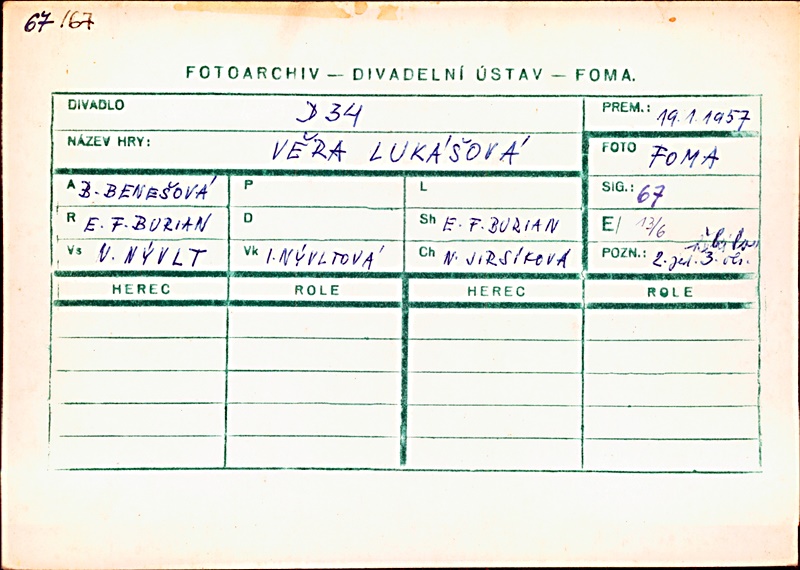 67/67
FOTOARCHIV — DIVADELNÍ ÚSTAV — FOMA.
DIVADLO D 34 PREM.: 19.1.1957
NÁZEV HRY: VĚRA LUKÁŠOVÁ FOTO FOMA
A B. BENEŠOVÁ P L SIG.: 67
R E. F. BURIAN D Sh E. F. BURIAN E/ 13/6
Vs V. NÝVLT Vk I. NÝVLTOVÁ Ch N. JIRSÍKOVÁ POZN.: 2. 3.
HEREC ROLE HEREC ROLE